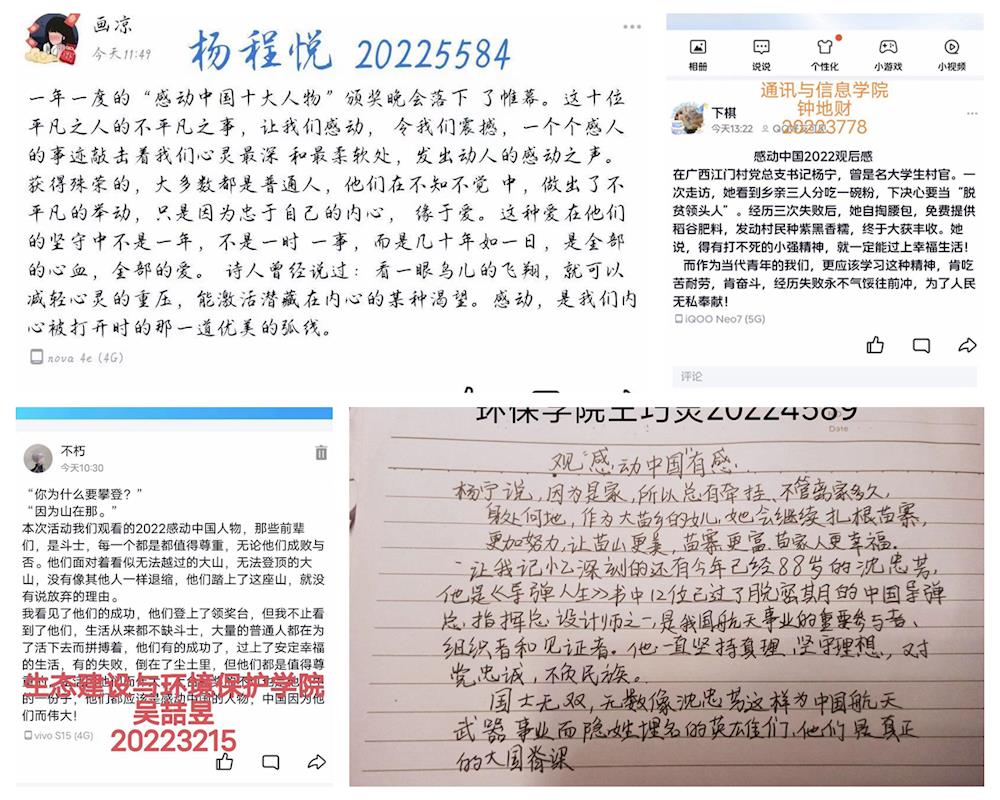 画凉
今天11:49
杨程悦 20225584
一年一度的“感动中国十大人物”颁奖晚会落下 了帷幕。这十位
平凡之人的不平凡之事，让我们感动， 令我们震撼，一个个感人
的事迹敲击着我们心灵最深 和最柔软处，发出动人的感动之声。
获得殊荣的，大多数都是普通人，他们在不知不觉 中，做出了不
平凡的举动，只是因为忠于自己的内心， 缘于爱。这种爱在他们
的坚守中不是一年，不是一时 一事，而是几十年如一日，是全部
的心血，全部的爱。 诗人曾经说过：看一眼鸟儿的飞翔，就可以
减轻心灵的重压，能激活潜藏在内心的某种渴望。感动，是我们内
心被打开时的那一道优美的弧线。
nova 4e (4G)
相册 说说 个性化 小游戏 小视频
通讯与信息学院
钟地财
20203778
下棋
今天13:22
感动中国2022观后感
在广西江门村党总支书记杨宁，曾是名大学生村官。一
次走访，她看到乡亲三人分吃一碗粉，下决心要当“脱
贫领头人”。经历三次失败后，她自掏腰包，免费提供
稻谷肥料，发动村民种紫黑香糯，终于大获丰收。她
说，得有打不死的小强精神，就一定能过上幸福生活！
而作为当代青年的我们，更应该学习这种精神，肯吃
苦耐劳，肯奋斗，经历失败永不气馁往前冲，为了人民
无私奉献！
iQOO Neo7 (5G)
评论
不朽
今天10:30
“你为什么要攀登？”
“因为山在那。”
本次活动我们观看的2022感动中国人物，那些前辈
们，是斗士，每一个都是都值得尊重，无论他们成败与
否。他们面对着看似无法越过的大山，无法登顶的大
山，没有像其他人一样退缩，他们踏上了这座山，就没
有说放弃的理由。
我看见了他们的成功，他们登上了领奖台，但我不止看
到了他们，生活从来都不缺斗士，大量的普通人都在为
了活下去而拼搏着，他们有的成功了，过上了安定幸福
的生活，有的失败，倒在了尘土里，但他们都是值得尊
的一份子，他们都应该是感动中国的人物，中国因为他
们而伟大！
生态建设与环境保护学院
吴喆昱
20223215
vivo S15 (4G)
环保学院王巧灵20224589
Date
观“感动中国”有感
杨宁说，因为是家，所以总有牵挂、不管离家多久，
身处何地，作为大苗乡的女儿，她会继续扎根苗寨，
更加努力，让苗山更美，苗寨更富，苗家人更幸福。
让我记忆深刻的还有今年已经88岁的沈忠芳，
他是《导弹人生》书中12位已过了脱密期的中国导弹
总指挥总设计师之一，是我国航天事业的重要参与者、
组织者和见证者。他一直坚持真理、坚守理想，对
党忠诚，不负民族。
国士无双，无数像沈忠芳这样为中国航天
武器事业而隐姓埋名的英雄们，他们是真正
的大国脊梁